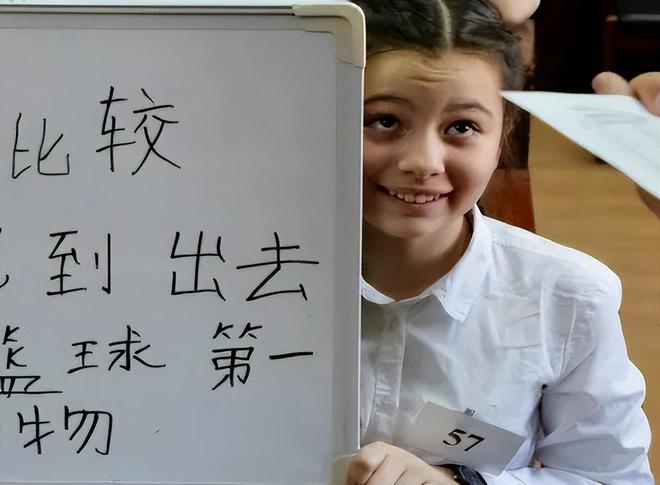 比较
到 出去
篮球 第一
物
57